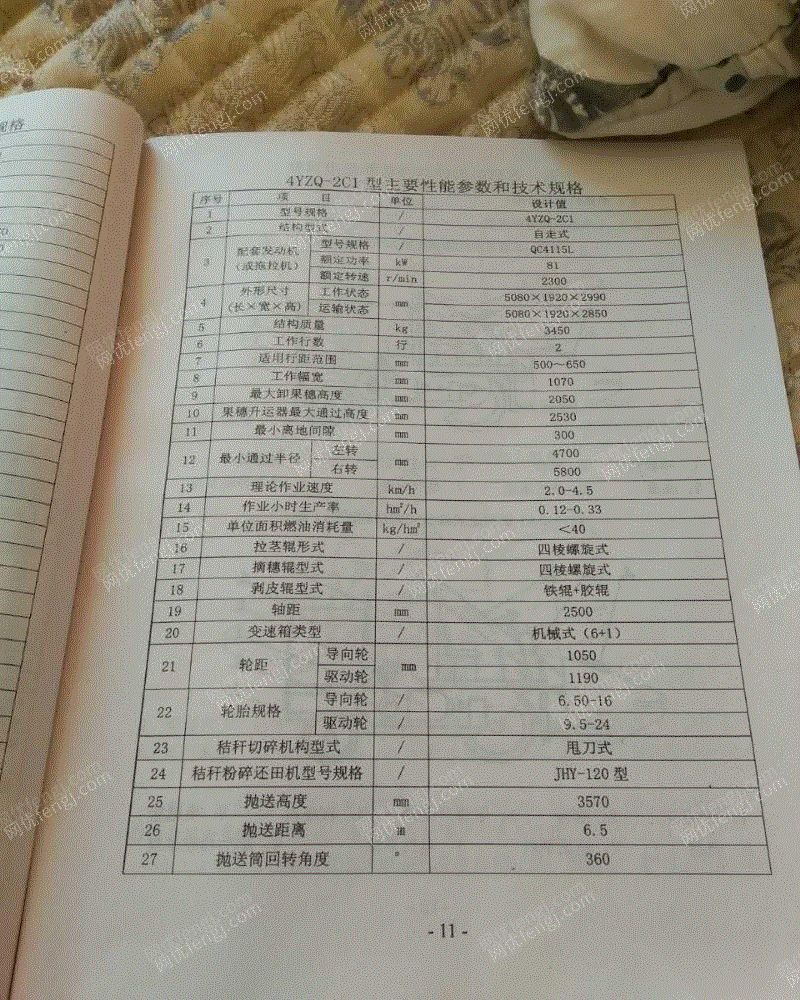 规格
4YZQ-2C1 型主要性能参数和技术规格
序号 项 目 单位 设计值
1 型号规格 / 4YZQ-2C1
2 结构型式 / 自走式
3 配套发动机(或拖拉机) 型号规格 / QC4115L
额定功率 kW 81
额定转速 r/min 2300
4 外形尺寸(长×宽×高) 工作状态 mm 5080×1920×2990
运输状态 5080×1920×2850
5 结构质量 kg 3450
6 工作行数 行 2
7 适用行距范围 mm 500～650
8 工作幅宽 mm 1070
9 最大卸果穗高度 mm 2050
10 果穗升运器最大通过高度 mm 2530
11 最小离地间隙 mm 300
12 最小通过半径 左转 mm 4700
右转 5800
13 理论作业速度 km/h 2.0-4.5
14 作业小时生产率 hm²/h 0.12-0.33
15 单位面积燃油消耗量 kg/hm² ＜40
16 拉茎辊形式 / 四棱螺旋式
17 摘穗辊型式 / 四棱螺旋式
18 剥皮辊型式 / 铁辊+胶辊
19 轴距 mm 2500
20 变速箱类型 / 机械式（6+1）
21 轮距 导向轮 mm 1050
驱动轮 1190
22 轮胎规格 导向轮 / 6.50-16
驱动轮 / 9.5-24
23 秸秆切碎机构型式 / 甩刀式
24 秸秆粉碎还田机型号规格 / JHY-120 型
25 抛送高度 mm 3570
26 抛送距离 m 6.5
27 抛送筒回转角度 ° 360
- 11 -
网优fengj.com